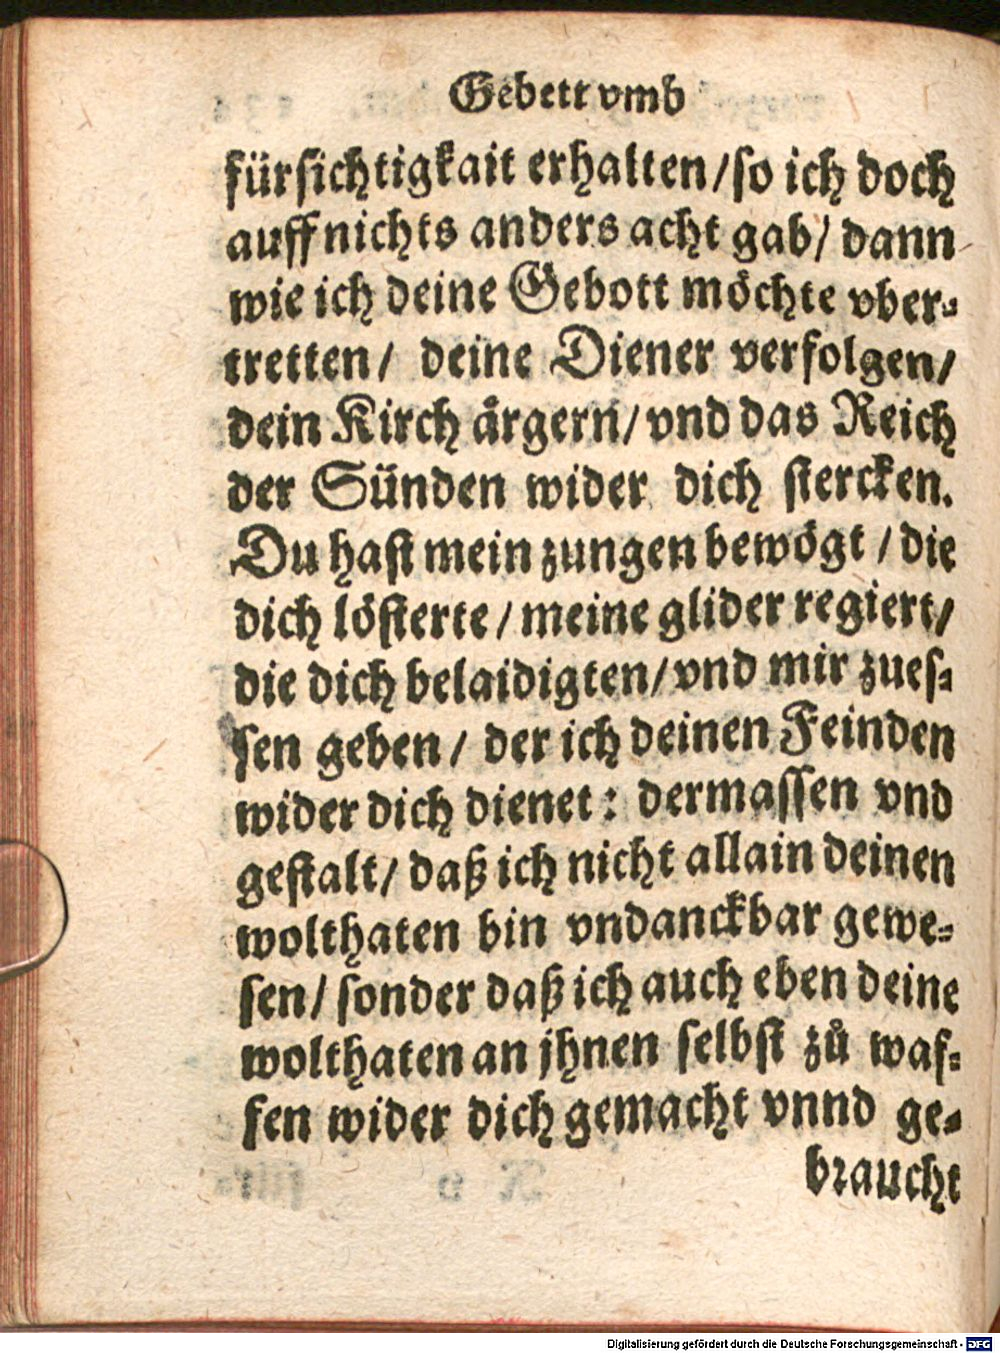 Gebett vmb
fürsichtigkait erhalten/so ich doch
auff nichts anders acht gab/ dann
wie ich deine Gebott möchte vber⸗
tretten/ deine Diener verfolgen/
dein Kirch årgern/vnd das Reich
der Sünden wider dich stercken.
Du hast mein zungen bewögt / die
dich lösterte / meine glider regiert/
die dich belaidigten/vnd mir zues⸗
sen geben / der ich deinen Feinden
wider dich dienet : dermassen vnd
gestalt/ daß ich nicht allain deinen
wolthaten bin vndanckbar gewe⸗
sen/ sonder daß ich auch eben deine
wolthaten an jhnen selbst zů waf⸗
fen wider dich gemacht vnnd ge⸗
braucht
Digitalisierung gefördert durch die Deutsche Forschungsgemeinschaft - DFG